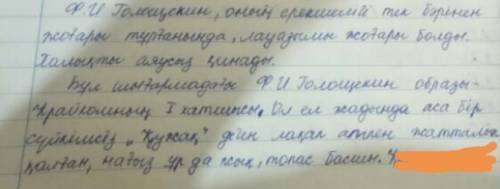 Ф.И Голощекин, оның ерекшелігі тек бәрінен
жоғары тұрғанында, лауазымы жоғары болды.
Халықты аяусыз қинады.
Бұл шығармадағы Ф И Голощекин образы-
Крайкомның I хатшысы. Ол ел жадында аса бір
сүйкімсіз „Қужақ" деген лақап атпен жатталып
қалған, нағыз ұр да жық, топас басшы.